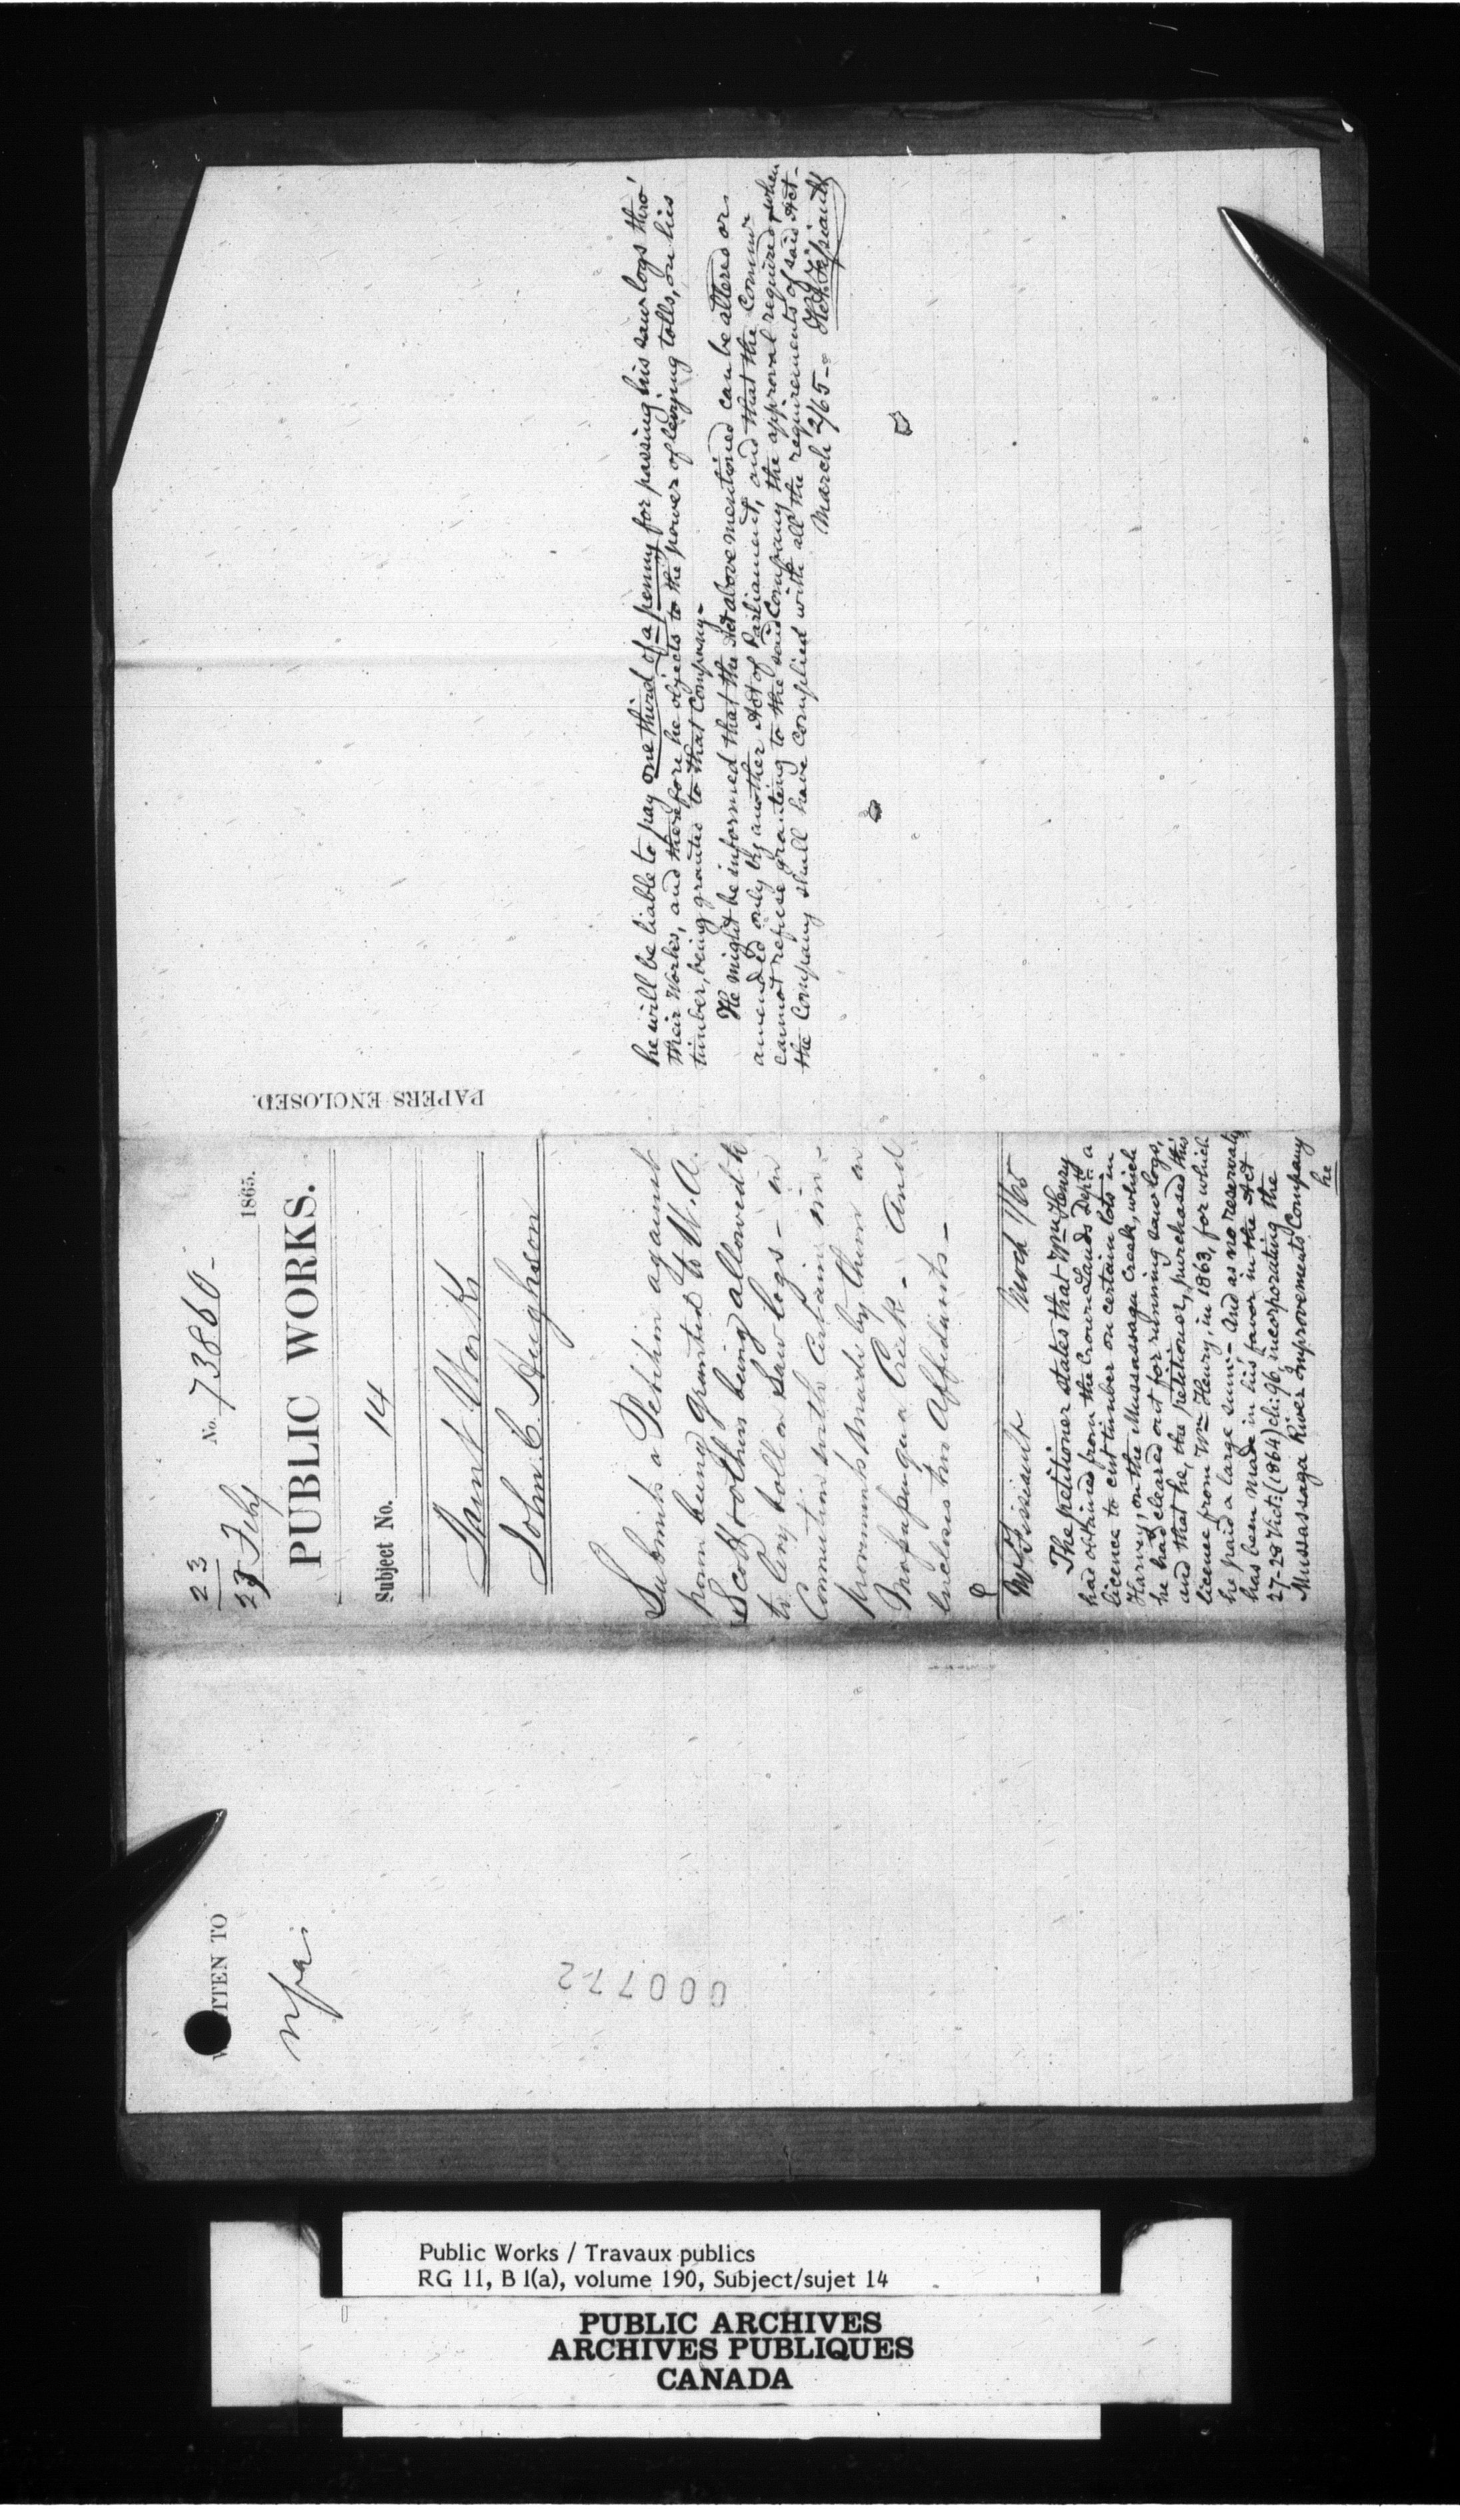 WRITTEN TO
npa
000772
23
23 Feby
No. 73860-
1865.
PUBLIC WORKS.
Subject No. 14
Saml York
John C. Hughson
Submits a Petition against
power being granted to W. A.
Scott & others being allowed to
to levy toll on Saw logs - in
Connection with Certain im-
provements made by them on
Mopapuqua Creek - and
encloses two affidavits -
Mr Fissiault March 1/65
The petitioner states that Wm Henry
had obtained from the Crown Lands Dept. a
licence to cut timber on certain lots in
Harvey, on the Mussassaga Creek, which
he had cleared out for running saw logs,
and that he, the petitioner, purchased this
licence from Wm Henry, in 1863, for which
he paid a large sum. - And as no reservation
has been made in his favor in the Act
27-28 Vict: (1864) ch: 96, incorporating the
Mussassaga River improvements Company
he
PAPERS ENCLOSED.
he will be liable to pay one third of a penny for passing his saw logs thro'
their Works, and therefore he objects to the power of levying tolls, on his
timber, being granted to that Company.-
He might be informed that the Act above mentioned can be altered or
amended only by another Act of Parliament, and that the Commr
cannot refuse granting to the said Company the approval required, when
the Company shall have complied with all the requirements of said Act -
March 2/65 - H.A. Fissiault
Public Works / Travaux publics
RG 11, B 1(a), volume 190, Subject/sujet 14
PUBLIC ARCHIVES
ARCHIVES PUBLIQUES
CANADA